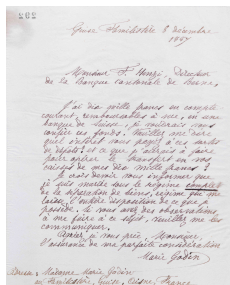 Guise Familistère 8 Décembre
1887
Monsieur F. Henzi, Directeur
de la Banque Cantonale de Berne,
J'ai dix mille francs en compte
courant, remboursables à vue, en une
banque de Suisse, je voudrais vous
confier ces fonds. Veuillez me dire
quel intérêt vous payez à ces sortes
de dépôts et ce que j'aurais à faire
pour opérer le transfert en vos
caisses de mes dix mille francs ?
Je crois devoir vous informer que
je suis mariée sous le régime complet
de la séparation de biens, régime qui me
laisse l'entière disposition de ce que je
possède. Si vous avez des observations
à me faire à ce sujet, veuillez me les
communiquer.
Agréez je vous prie, Monsieur,
l'assurance de ma parfaite considération
Marie Godin
Adresse: Madame Marie Godin
au Familistère, Guise, Aisne, France